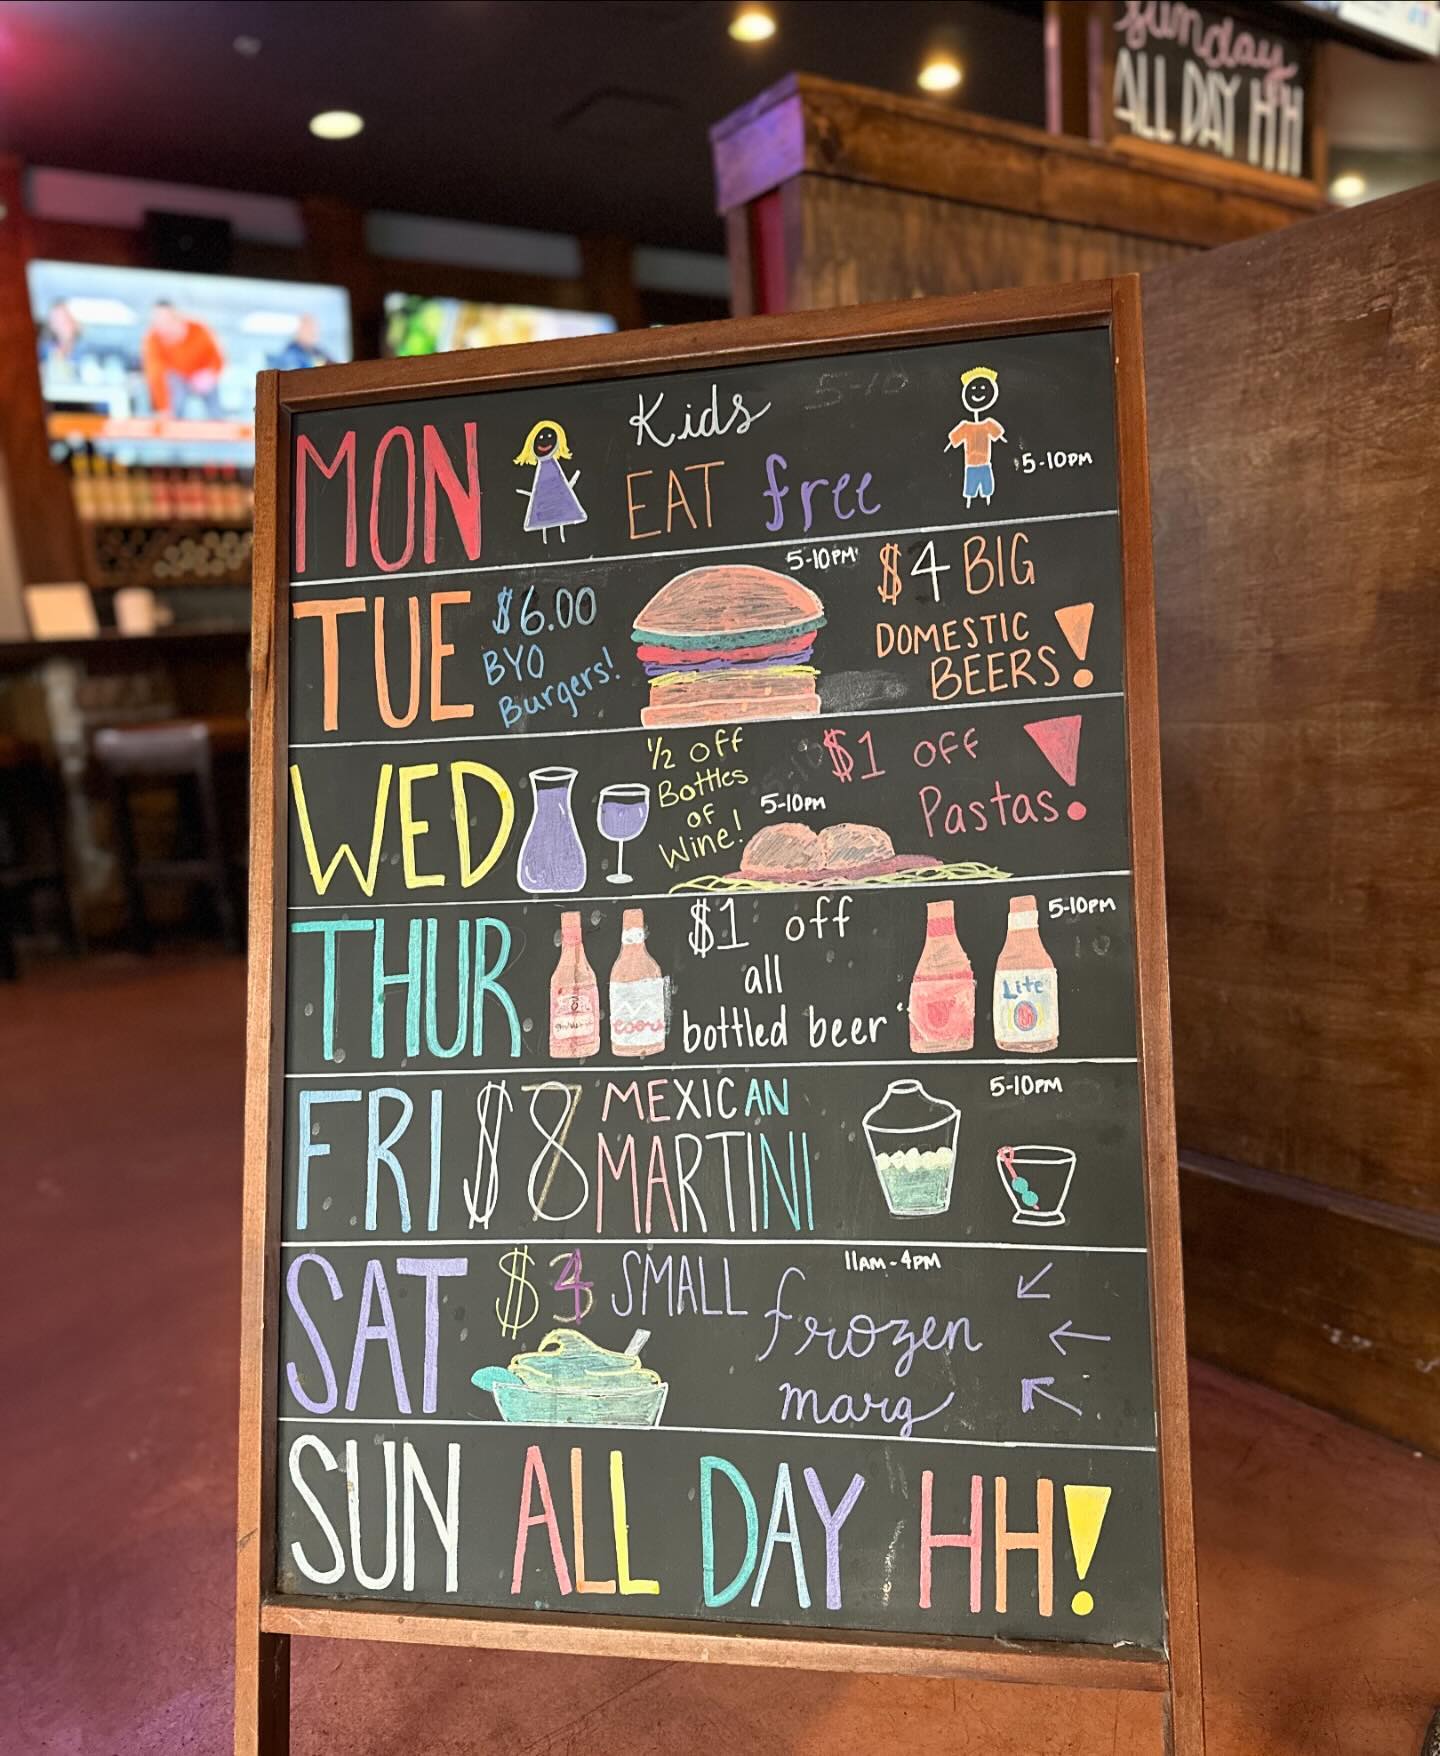 Sunday
ALL DAY HH
MON Kids 5-10
EAT free 5-10PM
TUE $6.00
BYO
Burgers!
5-10PM
$4 BIG
DOMESTIC
BEERS!
WED 1/2 OFF
Bottles
OF
Wine!
5-10PM
$1 OFF
Pastas!
THUR $1 off
all
bottled beer
coors
Lite
5-10PM
FRI $8 MEXICAN
MARTINI
5-10PM
SAT $4 SMALL
frozen
marg
11AM-4PM
SUN ALL DAY HH!